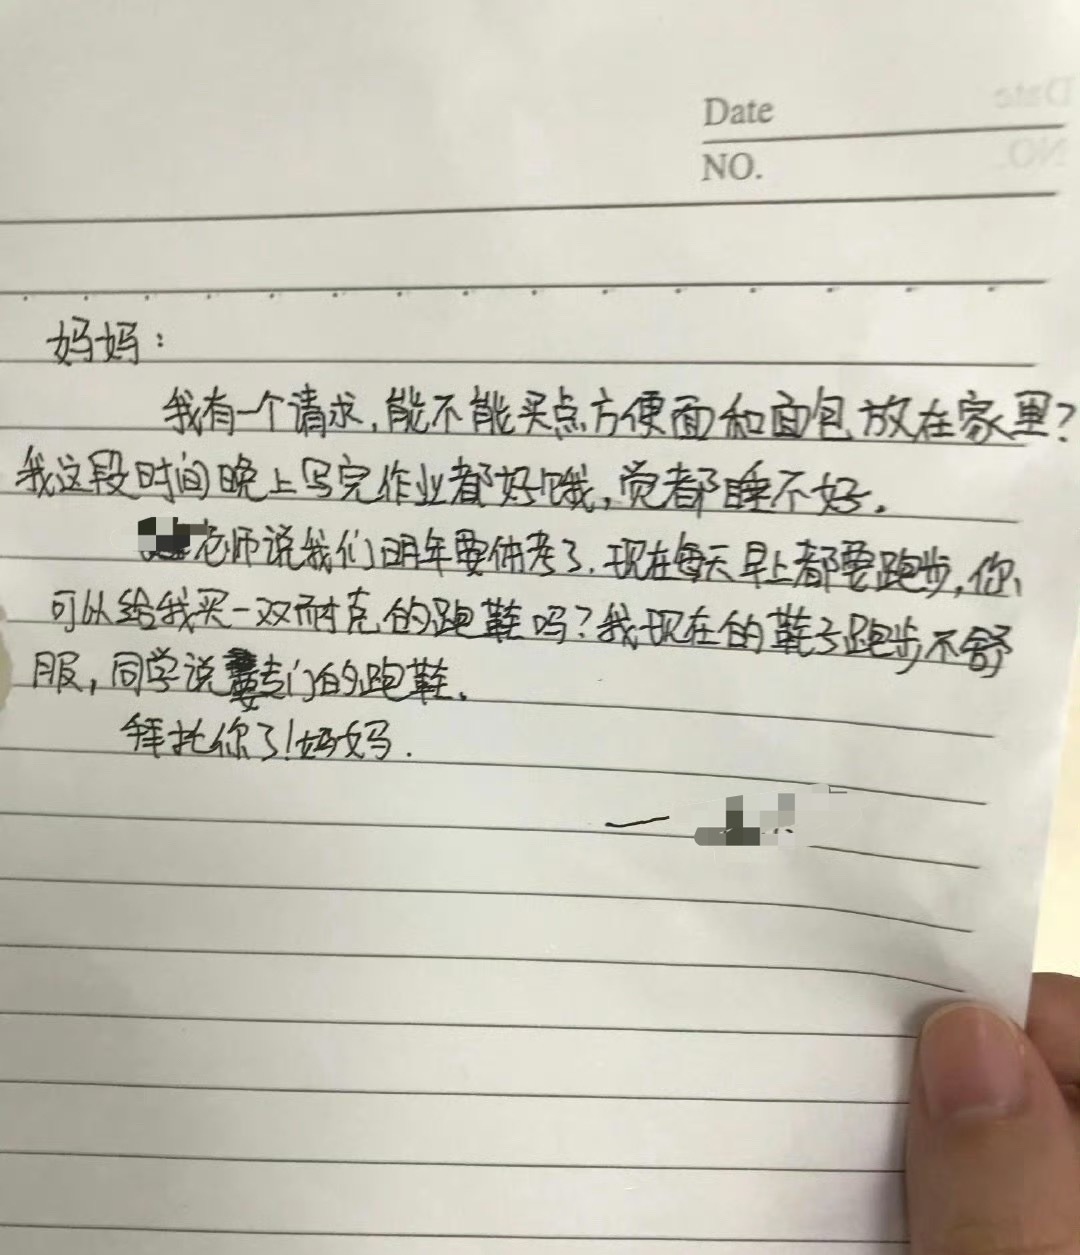 Date
NO.
妈妈：
我有一个请求，能不能买点方便面和面包放在家里？
我这段时间晚上写完作业都好饿，觉都睡不好。
老师说我们明年要体考了，现在每天早上都要跑步，你
可以给我买一双耐克的跑鞋吗？我现在的鞋子跑步不舒
服，同学说要专门的跑鞋。
拜托你了！妈妈．